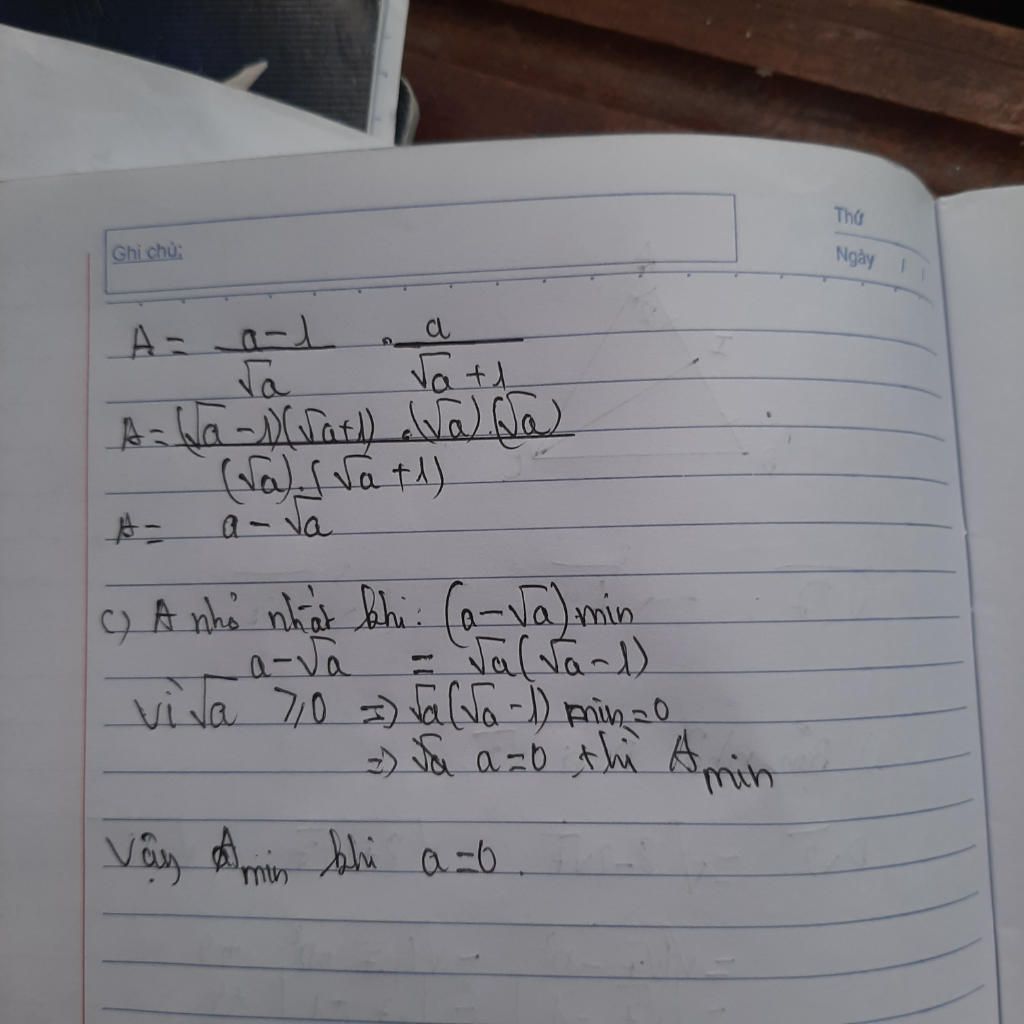 Thứ
Ghi chú:
Ngày / /
A = (a-1)/√a · a/(√a+1)
A = (√a-1)(√a+1).(√a).(√a) / (√a).(√a+1)
A = a-√a
c) A nhỏ nhất khi: (a-√a) min
a-√a = √a(√a-1)
Vì √a ⩾0 => √a(√a-1) min=0
=> √a a=0 thì A min
Vậy A min khi a=0.